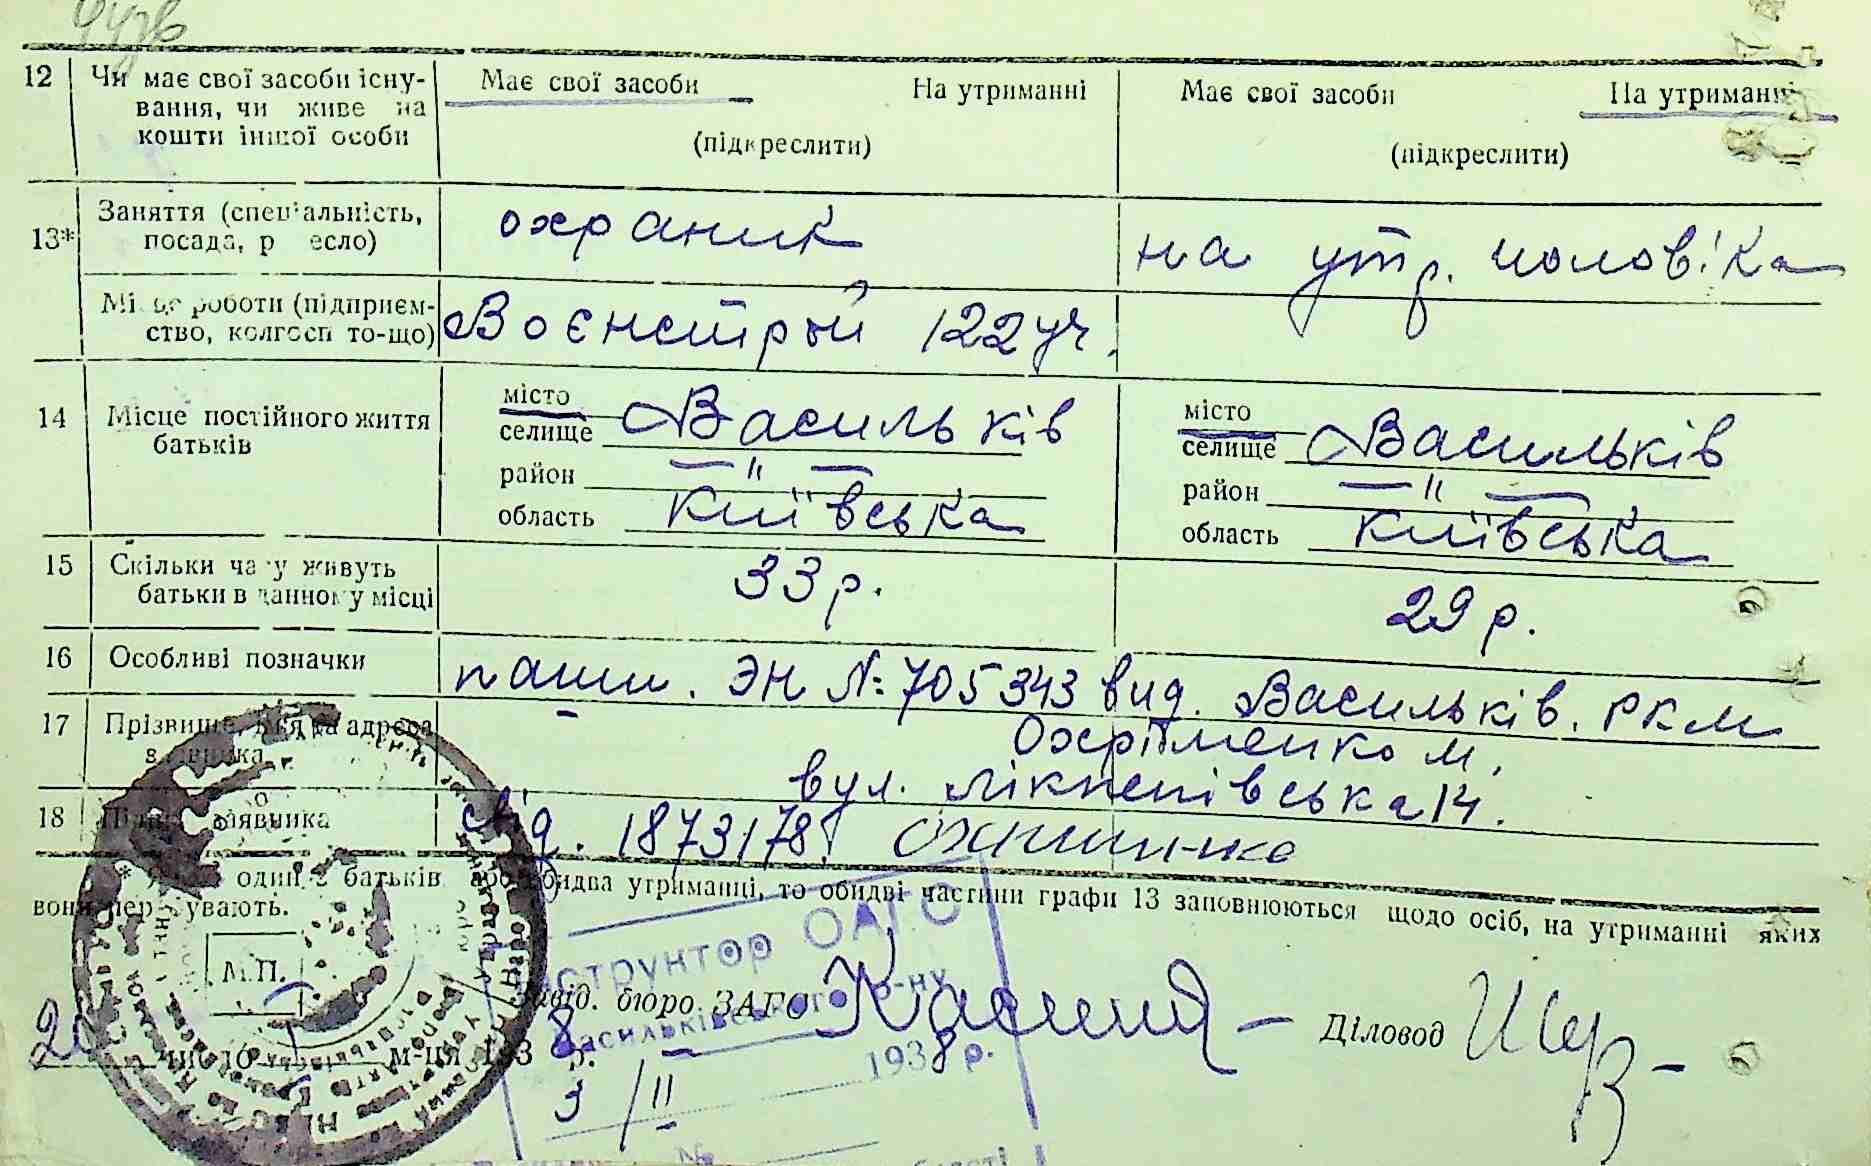 12 Чи має свої засоби існу- Має свої засоби На утриманні Має свої засоби На утриманні
вання, чи живе на
кошти іншої особи (підкреслити) (підкреслити)
13* Заняття (спеціальність, охраник на утр. чоловіка
посада, р есло)
Мі це роботи (підприєм- Воєнстрой 122 уч.
ство, колгосп то-що)
14 Місце постійного життя місто Васильків місто Васильків
батьків селище селище
район —〃 — район — 〃 —
область Київська область Київська
15 Скільки часу живуть 33 р. 29 р.
батьки в данному місці
16 Особливі позначки пашп. ЭН №: 705343 вид. Васильків. РКМ
17 Прізвище, адреса Охріменко М.
вул. Лікнепівська 14.
18 заявника свід. 1873178.
* один з батьків або обидва утриманні, то обидві частини графи 13 заповнюються щодо осіб, на утриманні яких
вони перебувають.
М.П.
Інструктор ОАГС
Васильківського р-ну
Завід. бюро ЗАГС Діловод
20 число м-ця 193 8 р.
3/II 1938 р.
№